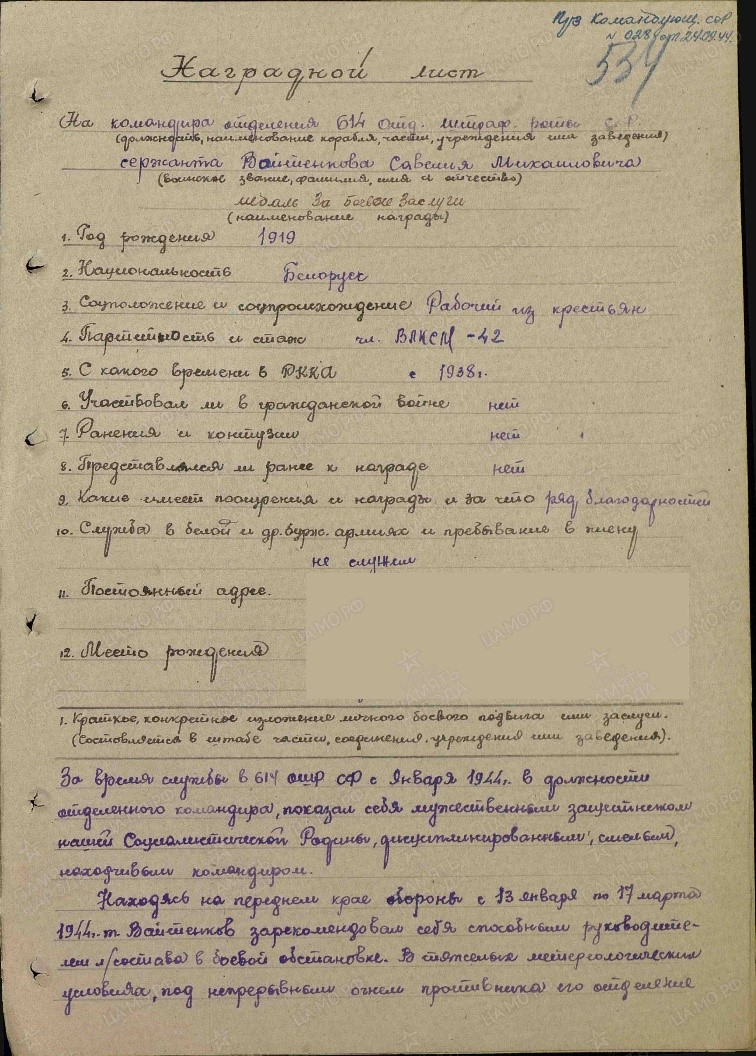 Пр-з Командующ. СОР
N 028 от 24.02.44.
534
Наградной лист
На командира отделения 614 отд. штраф. роты СОР
(должность, наименование корабля, части, учреждения или заведения)
сержанта Вайтенкова Савелия Михаиловича
(воинское звание, фамилия, имя и отчество)
медаль За боевые заслуги
(наименование награды)
1. Год рождения 1919
2. Национальность Белорус
3. Соцположение и соцпроисхождение Рабочий из крестьян
4. Партийность и стаж чл. ВЛКСМ -42
5. С какого времени в РККА с 1938г.
6. Участвовал ли в гражданской войне нет
7. Ранения и контузии нет
8. Представлялся ли ранее к награде нет
9. Какие имеет поощрения и награды и за что ряд благодарностей
10. Служба в белой и др. бурж. армиях и превывание в плену
не служил
11. Постоянный адрес.
12. Место рождения
1. Краткое, конкретное изложение личного боевого подвига или заслуги.
(Состовляется в штабе части, соединения, учреждения или заведения).
За время службы в 614 ОШР СФ с Января 1944г. в должности
отделенного командира, показал себя мужественным защитником
нашей Социалистической Родины, дисциплинированным, смелым,
находчивым командиром.
Находясь на переднем крае обороны с 13 января по 17 марта
1944г. т. Вайтенков зарекомендовал себя способным руководите-
лем л/состава в боевой обстановке. В тяжелых метергологических
условиях, под непрерывным огнем противника его отделение